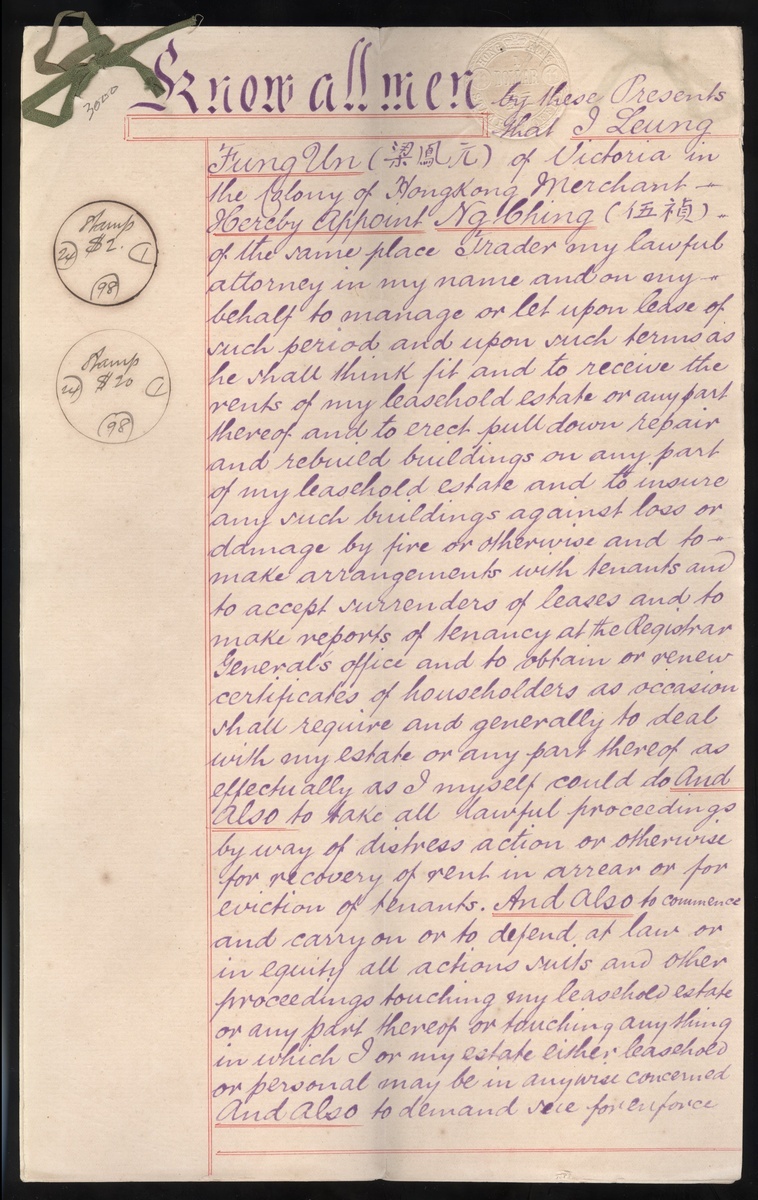 3000
Know all men by these Presents
that I Leung
Fung Un (梁鳳元) of Victoria in
the Colony of Hongkong Merchant
Hereby Appoint Ng Ching (伍禎)
of the same place Trader my lawful
attorney in my name and on my
behalf to manage or let upon lease of
such period and upon such terms as
he shall think fit and to receive the
rents of my leasehold estate or any part
thereof and to erect pull down repair
and rebuild buildings on any part
of my leasehold estate and to insure
any such buildings against loss or
damage by fire or otherwise and to
make arrangements with tenants and
to accept surrenders of leases and to
make reports of tenancy at the Registrar
General's office and to obtain or renew
certificates of householders as occasion
shall require and generally to deal
with my estate or any part thereof as
effectually as I myself could do And
Also to take all lawful proceedings
by way of distress action or otherwise
for recovery of rent in arrear or for
eviction of tenants. And Also to commence
and carry on or to defend at law or
in equity all actions suits and other
proceedings touching my leasehold estate
or any part thereof or touching anything
in which I or my estate either leasehold
or personal may be in anywise concerned
And Also to demand sue for enforce
Stamp
$2.
24 1
98
Stamp
$20
24 1
98